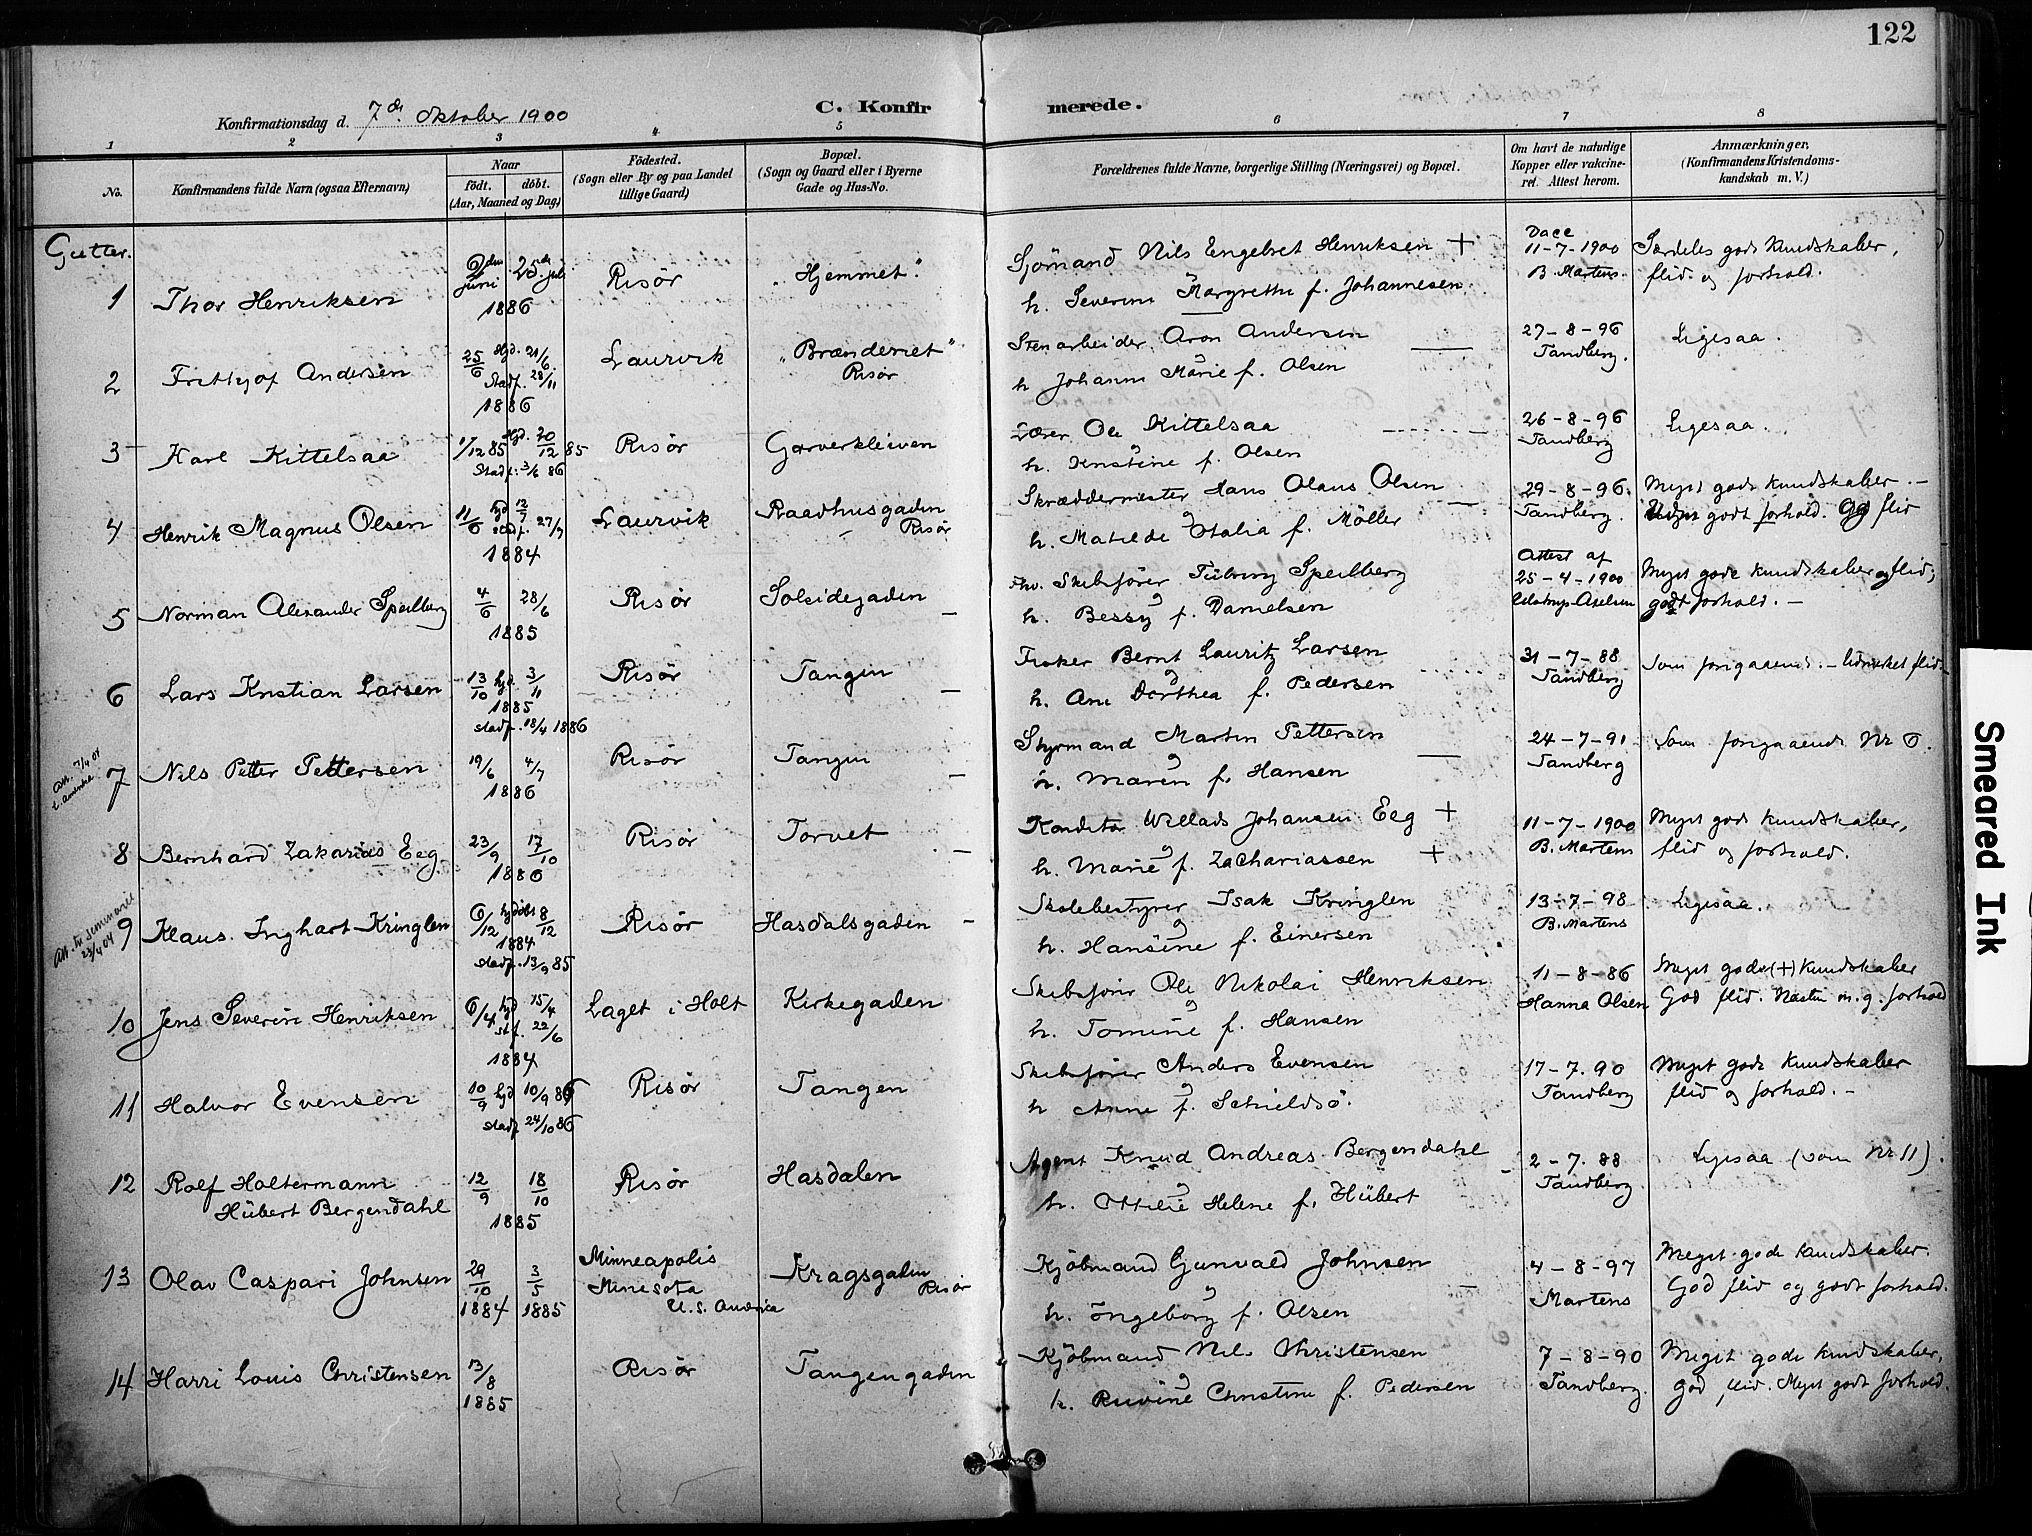 122
Konfirmationsdag d. 7de Oktober 1900
C. Konfirmerede.
1 2 3 4 5 6 7 8
No.
Konfirmandens fulde Navn (ogsaa Efternavn)
Naar
födt. döbt.
(Aar, Maaned og Dag)
Födested.
(Sogn eller By og paa Landet
tillige Gaard)
Bopæl.
(Sogn og Gaard eller i Byerne
Gade og Hus-No.
Forældrenes fulde Navne, borgerlige Stilling (Næringsvei) og Bopæl.
Om havt de naturlige
Kopper eller vakcine-
ret. Attest herom.
Anmærkninger,
(Konfirmandens Kristendoms-
kundskab m. V.)
Gutter.
1 Thor Henriksen
Juni 25de juli
1886
Risör
"Hjemmet".
Sjömand Nils Engelbret Henriksen +
h. Severine Margrethe f. Johannesen.
11-7-1900
B. Martens.
Særdeles gode kundskaber,
flid og forhold.
2 Frithjof Andersen
25/6 Hjd. 21/6
Stadf. 28/11
1886
Laurvik
"Brænderiet"
Risör
Stenarbeider Aron Andersen
h Johanne Marie f. Olsen
27-8-96
Tandberg.
Ligesaa.
3 Karl Kittelsaa
1/12 85 Hjd. 20/12 85
Stadf. 3/6 86
Risör
Garverkleiven
Lærer Ole Kittelsaa
h. Kristine f. Olsen
26-8-96
Tandberg
Ligesaa.
4 Henrik Magnus Olsen
11/6 hjd 12/7
stadf. 27/7
1884
Laurvik
Raadhusgaden
Risör
Skræddermester Hans Olaus Olsen
og
h. Matilde Otalia f. Möller
29-8-96.
Tandberg.
Meget gode kundskaber.-
godt forhold. flid
5 Norman Alexander Speilberg
4/6 28/6
1885
Risör
Solsidegaden
Skibsförer Speilberg
og
h. Bessy f. Danielsen
Attest af
25-4-1900
Meget gode kundskaber og flid;
godt forhold.-
6 Lars Kristian Larsen
13/10 hjd. 3/11
1885
stadf. 18/4 1886
Risör
Tangen
Fisker Bernt Lauritz Larsen
og
h. Ane Dorthea f. Pedersen
31-7-88
Tandberg
Som forgaaende.- Udmerket flid.
Att. 7/4 04
t. Amerika
7 Nils Petter Pettersen
19/6 4/7
1886
Risör
Tangen
Styrmand Martin Pettersen
og
h. Maren f. Hansen
24-7-91
Tandberg
Som forgaaende Nr 6.
8 Bernhard Zakarias Eeg
23/9 17/10
1886
Risör
Torvet
Konditor Willads Johansen Eeg +
og
h. Marie f. Zachariassen +
11-7-1900
B. Martens
Meget gode kundskaber,
flid og forhold.
Att. til seminariet
23/4 04
9 Klaus Inghart Kringlen
6/12 hjdöbt 8/12
1884
stadf. 13/9 85
Risör
Hasdalsgaden
Skolebestyrer Isak Kringlen
og
h. Hansine f. Einersen
13-7-98
B. Martens
Ligesaa.
10 Jens Severin Henriksen
6/4 hjd 15/4
stf. 22/6
1884
Laget i Holt
Kirkegaden
Skibsförer Ole Nikolai Henriksen
og
h. Tomine f. Hansen
11-8-86
Hanna Olsen
Meget gode (+) kundskaber
God flid. Næsten m.g. forhold
11 Halvor Evensen
10/9 hjd 10/9 86
stadf. 24/10 86
Risör
Tangen
Skibsförer Anders Evensen
og
h Anne f. Schieldsö.
17-7.90
Tandberg
Meget gode kundskaber
flid og forhold.-
12 Rolf Holtermann
Hübert Bergendahl
12/9 18/10
1885
Risör
Hasdalen
Agent Knud Andreas Bergendahl
og
h. Ottilie Helene f. Hübert
2-7.88
Tandberg
Ligesaa (som Nr 11).
13 Olav Caspari Johnsen
29/10 3/5
1884 1885
Minneapolis
Minesota
U.S. America
Kragsgaden
Risör
Kjöbmand Gunvald Johnsen
og
h. Ingeborg f. Olsen
4-8-97
Martens
Meget gode kundskaber.
God flid og godt forhold.
14 Harri Louis Christensen
13/8
1885
Risör
Tangengaden
Kjöbmand Nils Christensen
og
h. Christine f. Pedersen
7-8-90
Tandberg.
Meget gode kundskaber,
god flid. Meget godt forhold.
Smeared Ink